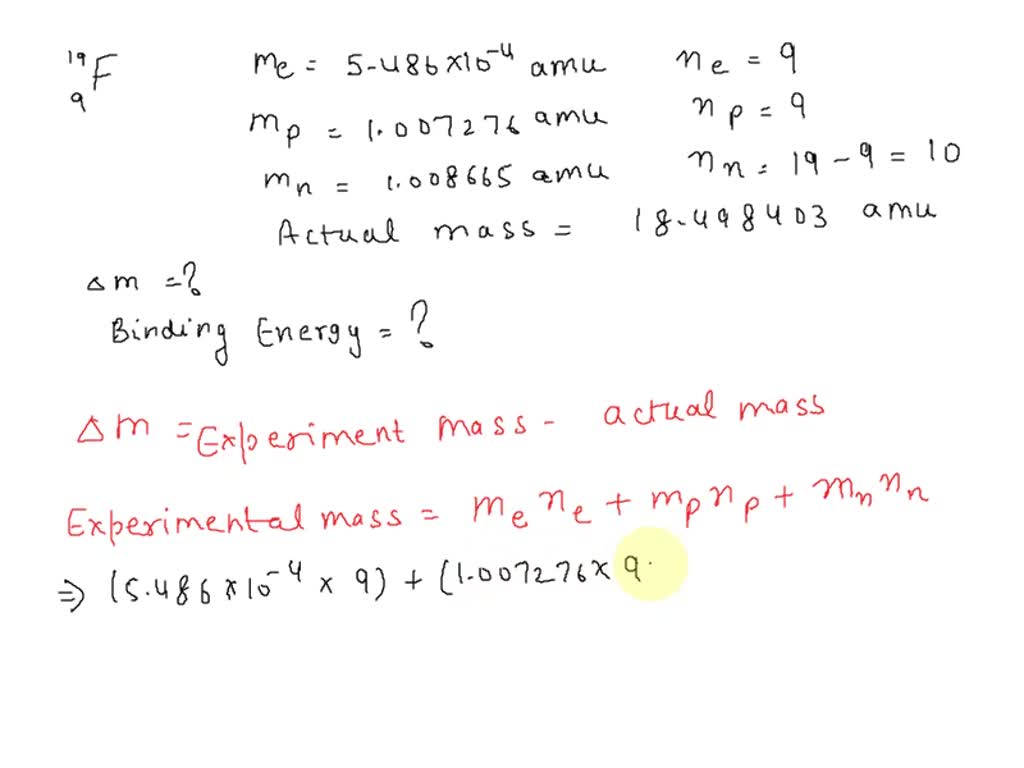 19
F mе = 5.486×10⁻⁴ amu nₑ = 9
9
mₚ = 1.007276 amu nₚ = 9
mₙ = 1.008665 amu nₙ = 19 - 9 = 10
Actual mass = 18.498403 amu
Δm = ?
Binding Energy = ?
Δm = Experiment mass - actual mass
Experimental mass = mₑnₑ + mₚnₚ + mₙnₙ
⇒ (5.486×10⁻⁴ × 9) + (1.007276 × 9